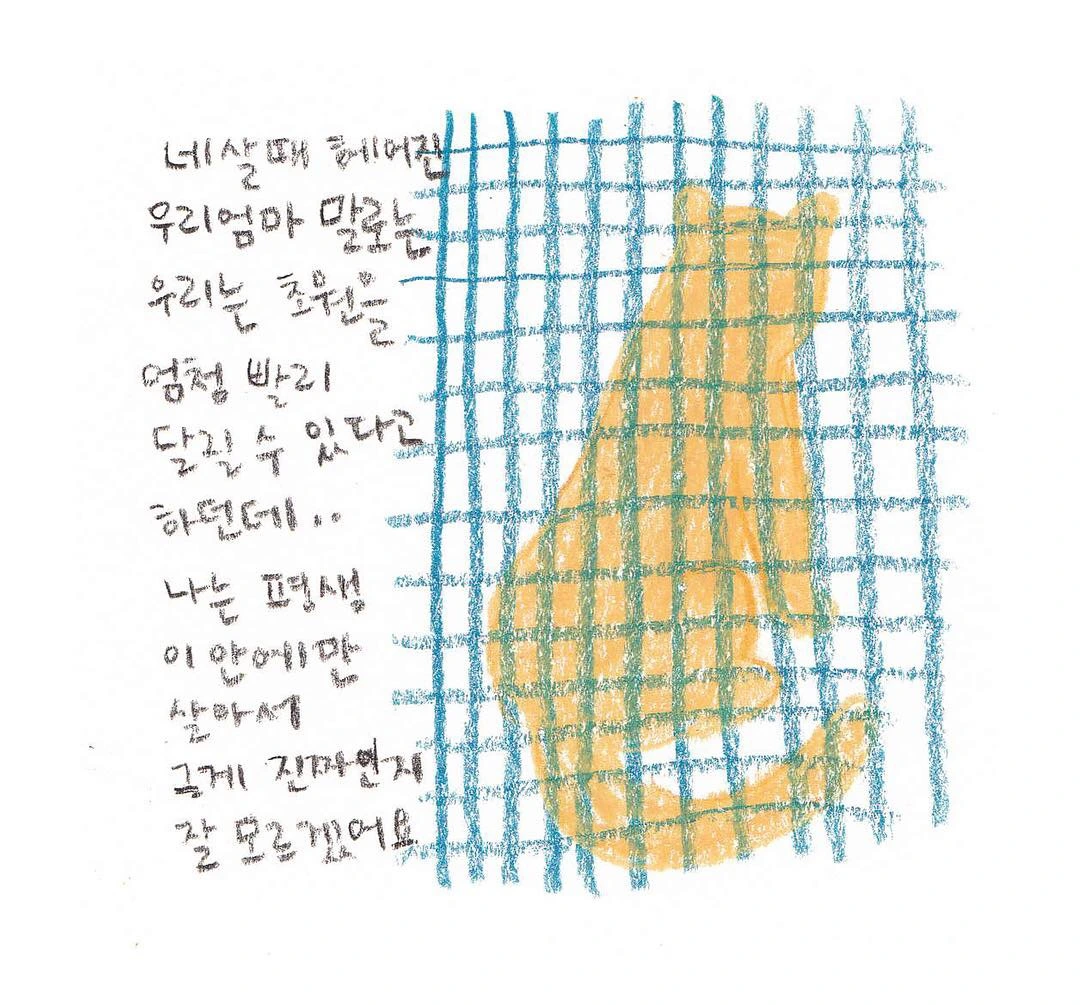 네살때 헤어진
우리엄마 말로는
우리는 초원을
엄청 빨리
달릴 수 있다고
하던데..
나는 평생
이 안에만
살아서
그게 진짜인지
잘 모르겠어요